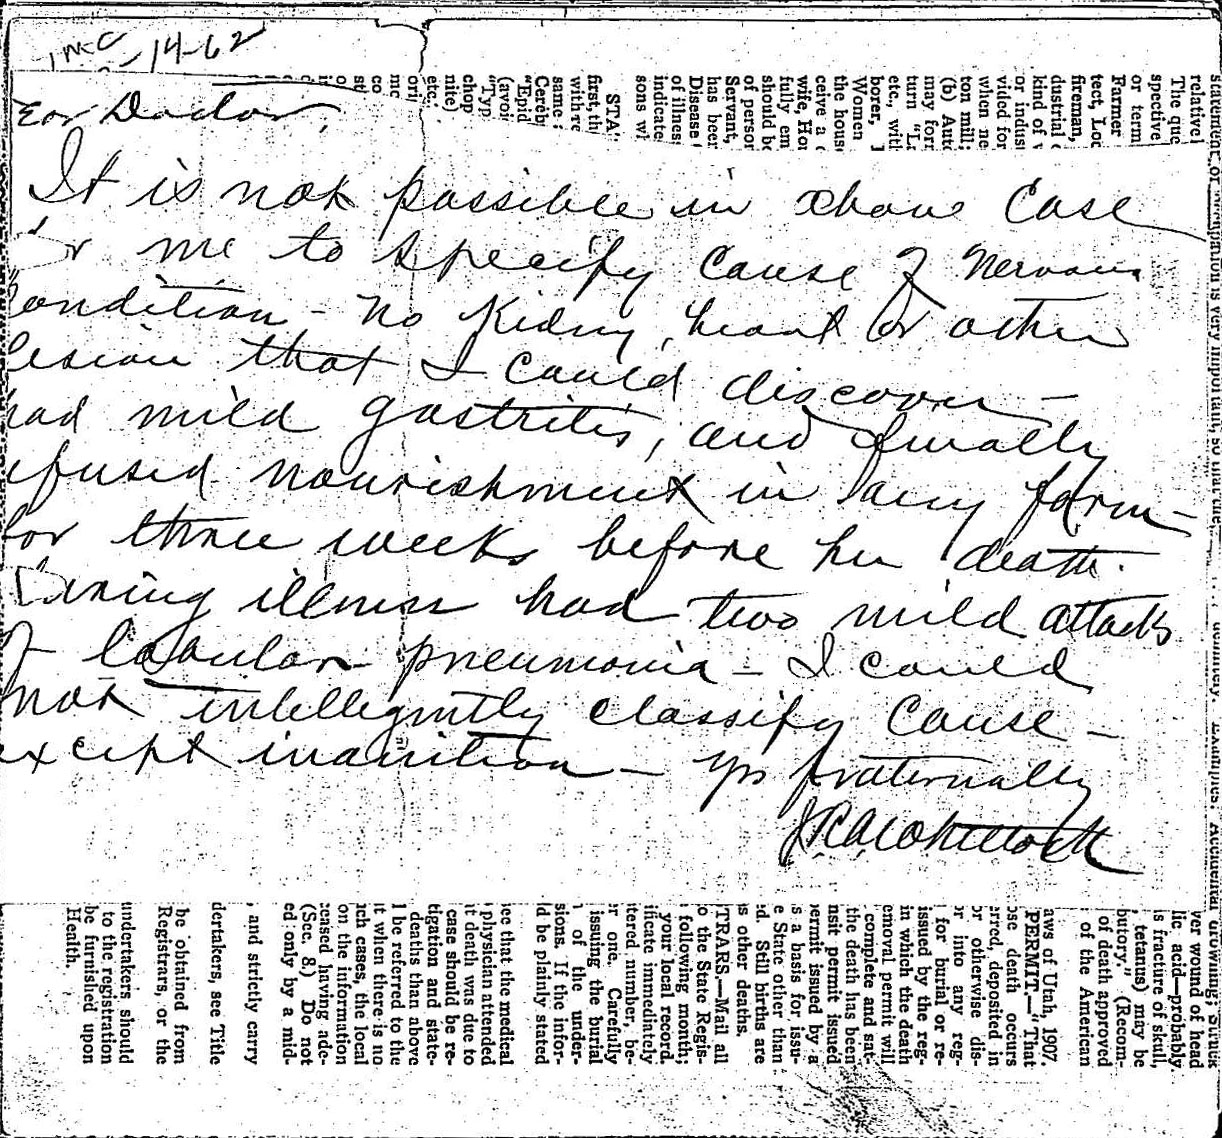 14-62
ear Doctor,
It is not possible in above Case
for me to specify cause of nervous
condition - No Kidney, heart or other
lesion that I could discover -
had mild gastritis, and finally
efused nourishment in any form -
for three weeks before her death.
During illness had two mild attacks
of lobular pneumonia - I could
not intelligently classify cause -
except inanition - Yrs fraternally
STA
first, th
with re
same
Cereb
"Epid
(avoi
"Typ
chop
nite)
etc.,
ori
sons wh
indicate
of illness
Disease
has beer
Servant,
of persor
should be
fully em
wife, Hou
ceive a
the hous
Women
borer,
etc., with
turn "La
may forn
(b) Auto
ton mill;
when ne
vided for
or indus
kind of
dustrial
fireman,
tect, Loc
Farmer
or term
spective
The que
relativel
statement of occupation is very important, so that
Examples: Accidental drowning; Struck
ver wound of head
lic acid—probably
is fracture of skull,
, tetanus) may be
butory." (Recom-
of death approved
of the American
aws of Utah, 1907.
PERMIT.—"That
ose death occurs
rred, deposited in
or otherwise dis-
or into any reg-
for burial or re-
issued by the reg-
in which the death
emoval permit was
complete and sat-
the death has been
nsit permit issued
ermit issued by a
s a basis for issu-
e State other than
d. Still births are
s other deaths.
TRARS.—Mail all
o the State Regis-
following month;
your local record.
ificate immediately
tered number, be-
r one. Carefully
issuing the burial
n of the under-
sions. If the infor-
d be plainly stated
ee that the medical
physician attended
t death was due to
case should be re-
tigation and state-
deaths than above
l be referred to the
t when there is no
ch cases, the local
on the information
ceased having ade-
(Sec. 8.) Do not
ed only by a mid-
, and strictly carry
dertakers, see Title
be obtained from
Registrars, or the
undertakers should
to the registration
be furnished upon
Health.